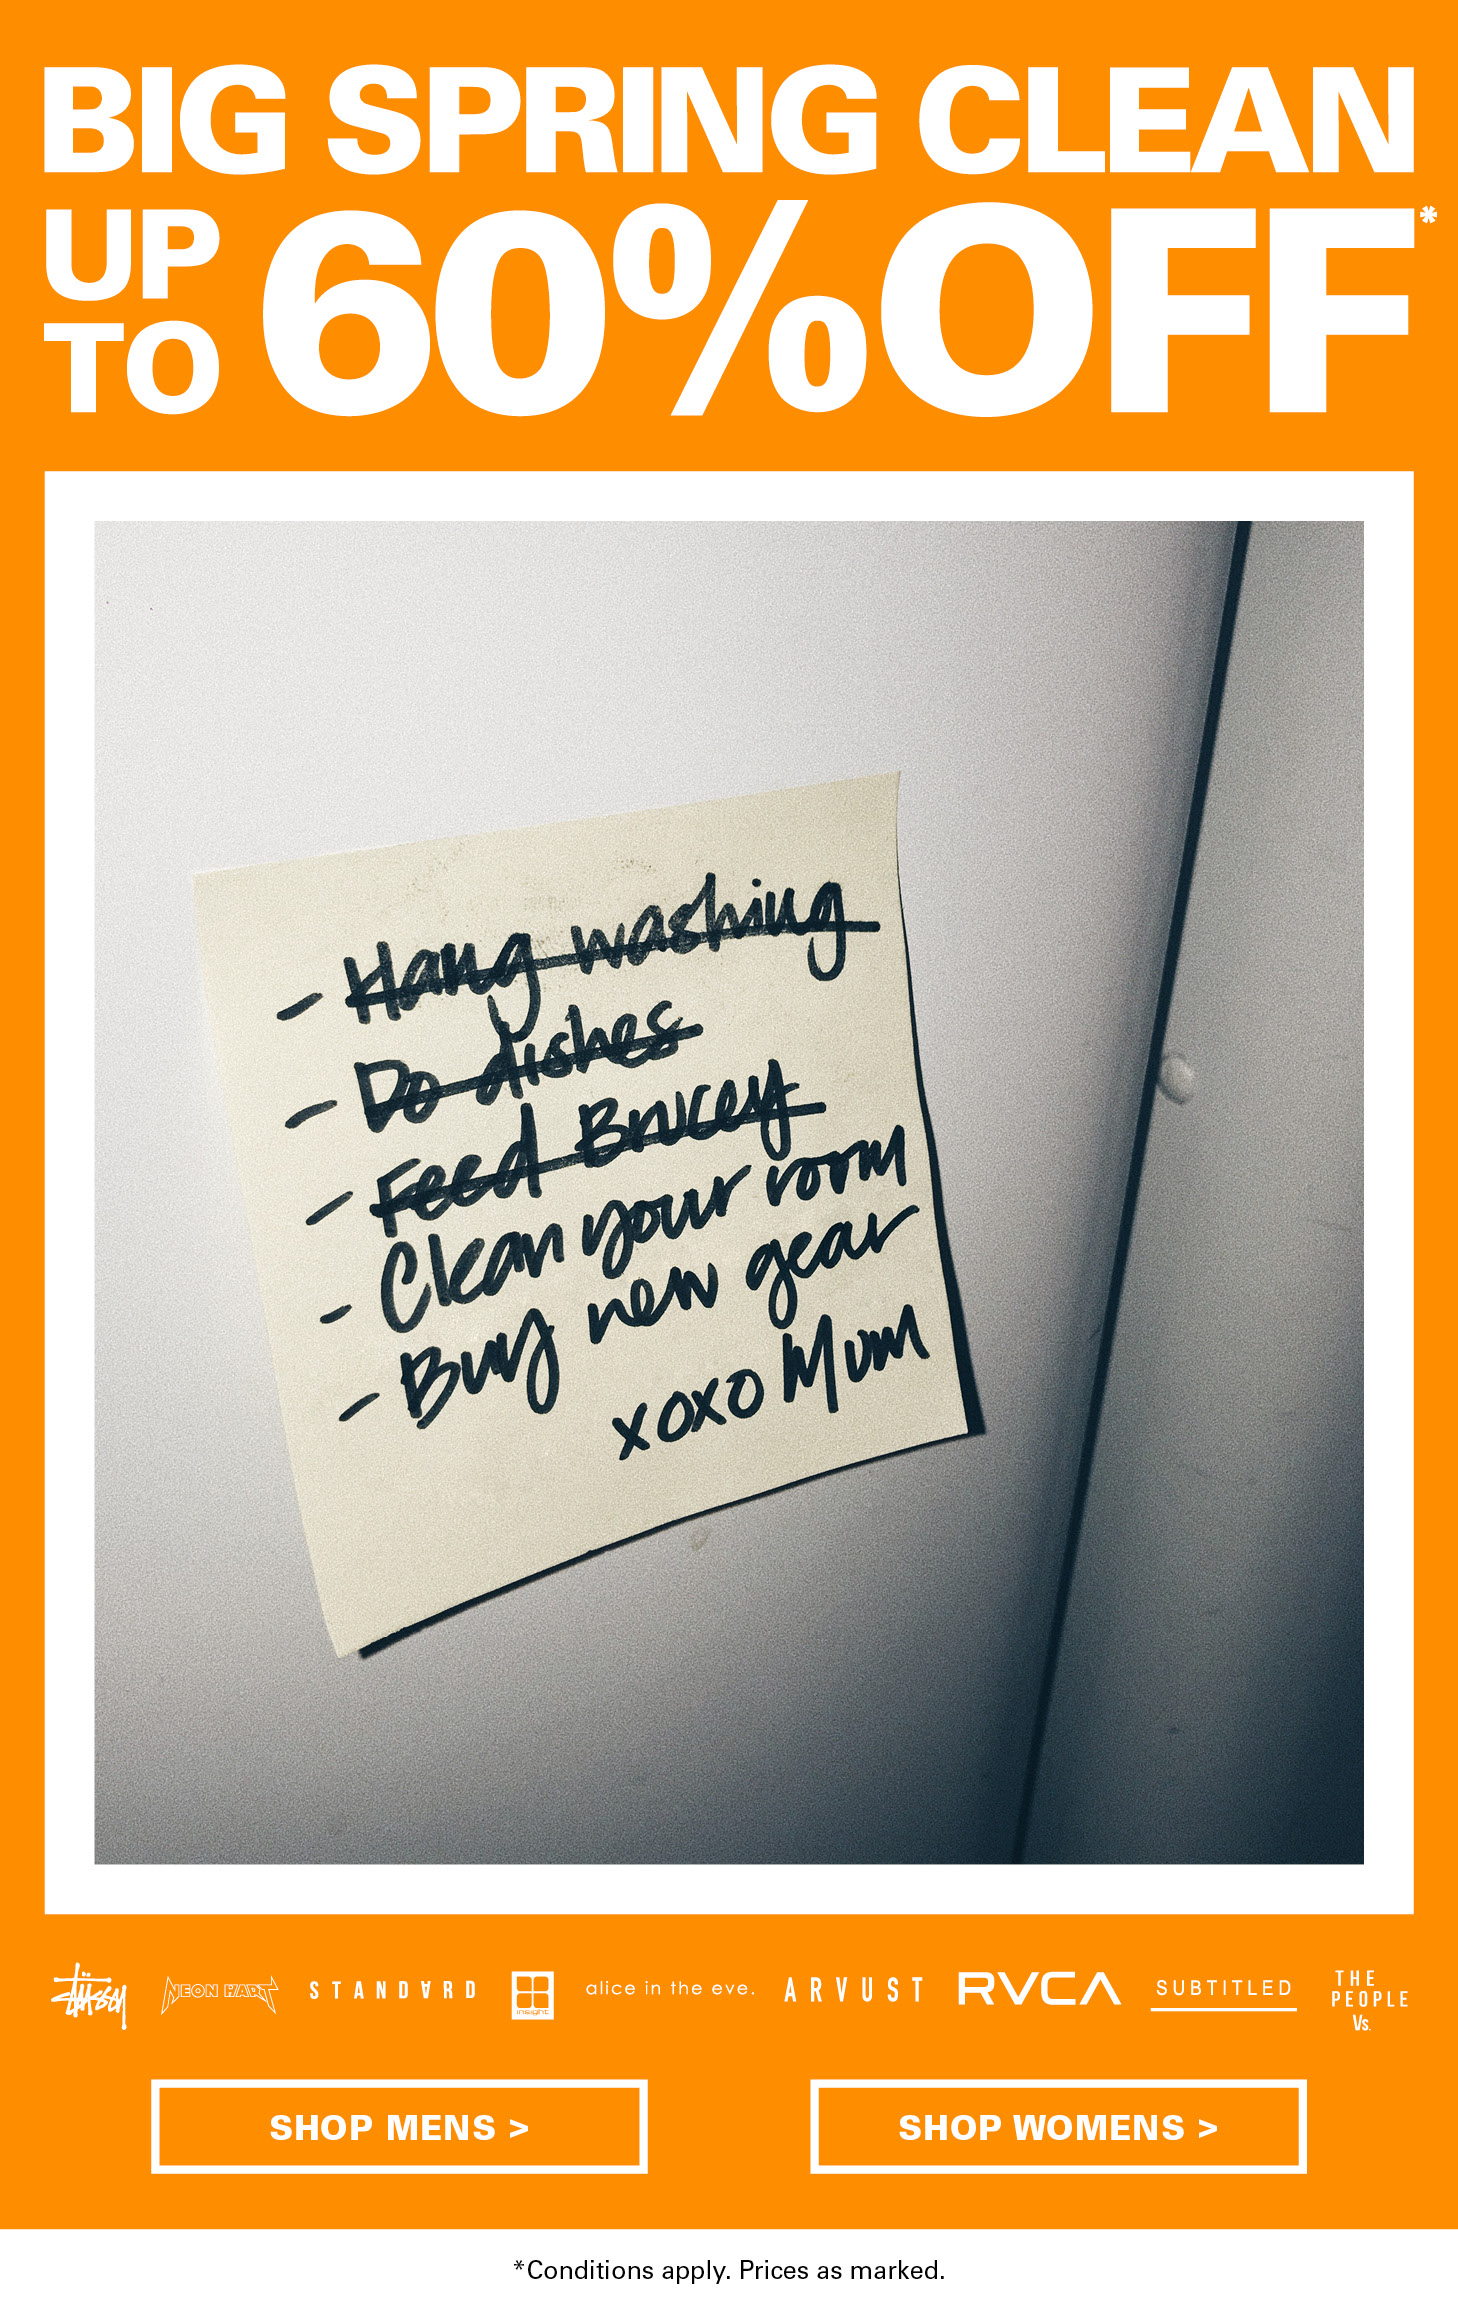 BIG SPRING CLEAN
UP TO 60% OFF*
- Hang washing
- Do dishes
- Feed Brucey
- Clean your room
- Buy new gear
xoxo Mum
STÜSSY NEON HART STANDARD insight alice in the eve. ARVUST RVCA SUBTITLED THE PEOPLE Vs.
SHOP MENS > SHOP WOMENS >
*Conditions apply. Prices as marked.